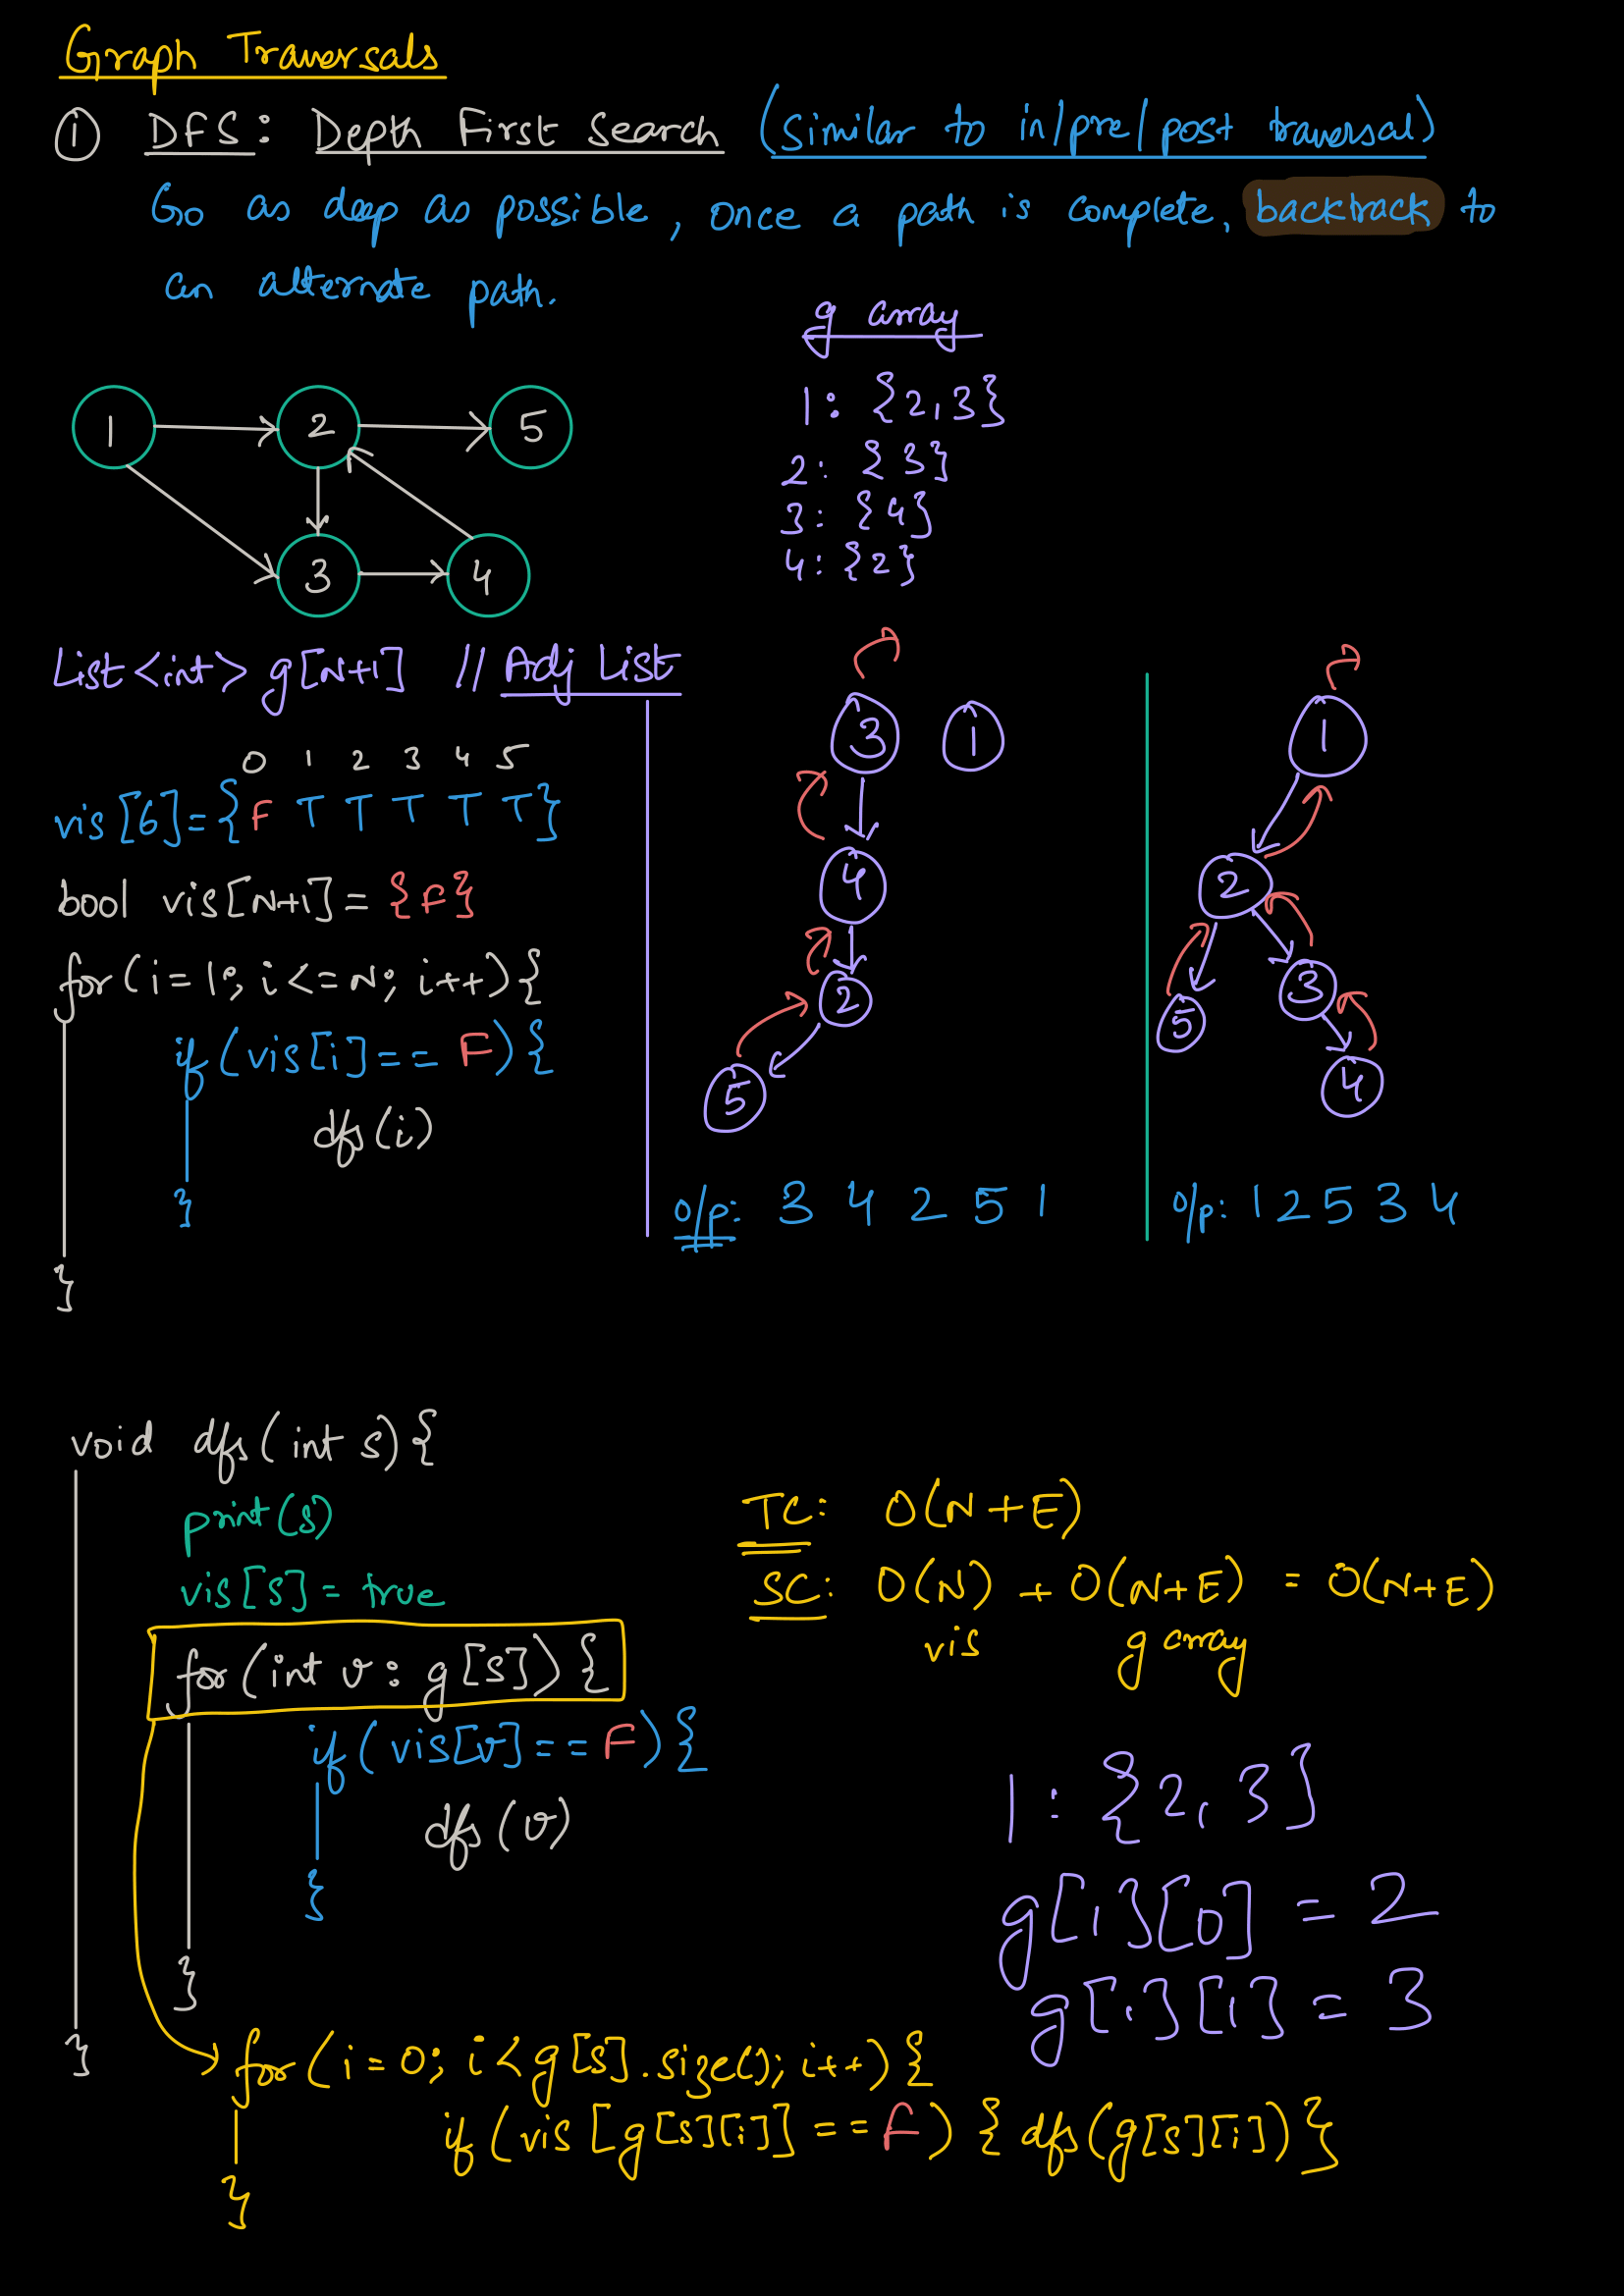 Graph Traversals
① DFS: Depth First Search (Similar to in/pre/post traversal)
Go as deep as possible, once a path is complete, backtrack to
an alternate path.
g array
1: {2,3}
2: {3}
3: {4}
4: {2}
1 2 5
3 4
List<int> g[N+1] // Adj List
0 1 2 3 4 5
vis[6]={F T T T T T}
bool vis[N+1] = {F}
for(i=1; i<=N; i++){
if(vis[i]==F){
dfs(i)
}
}
3 1
4
2
5
o/p: 3 4 2 5 1
1
2
5 3
4
o/p: 1 2 5 3 4
void dfs(int s){
print(s)
vis[s] = true
for(int v: g[s]){
if(vis[v]==F){
dfs(v)
}
}
}
TC: O(N+E)
SC: O(N) + O(N+E) = O(N+E)
vis g array
1: {2,3}
g[1][0] = 2
g[1][1] = 3
for(i=0; i<g[s].size(); i++){
if(vis[g[s][i]] == F) { dfs(g[s][i]) }
}